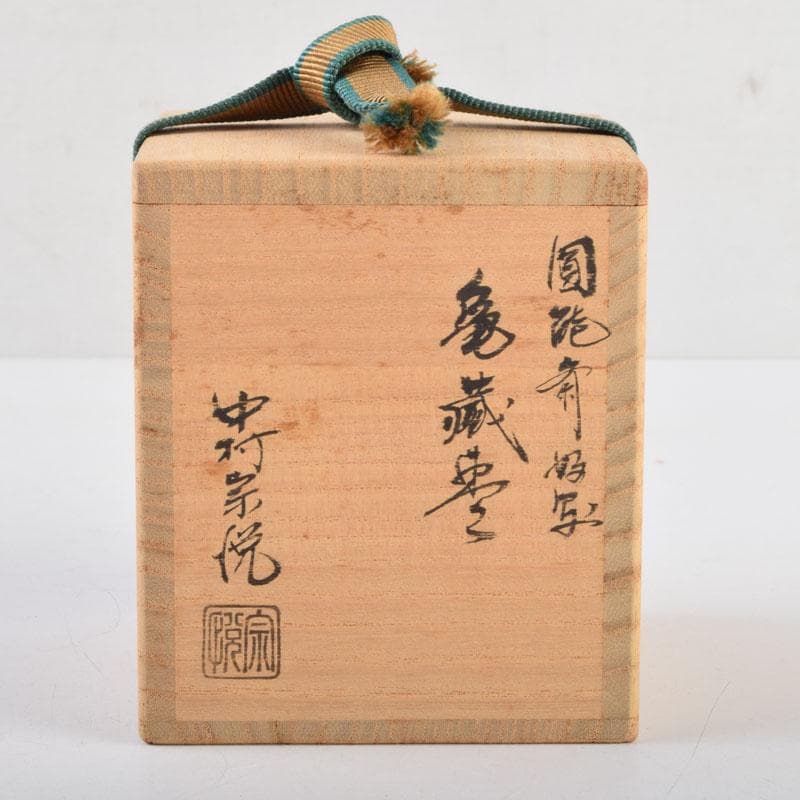 圓能斎好写
亀蔵棗
中村宗悦
宗悦